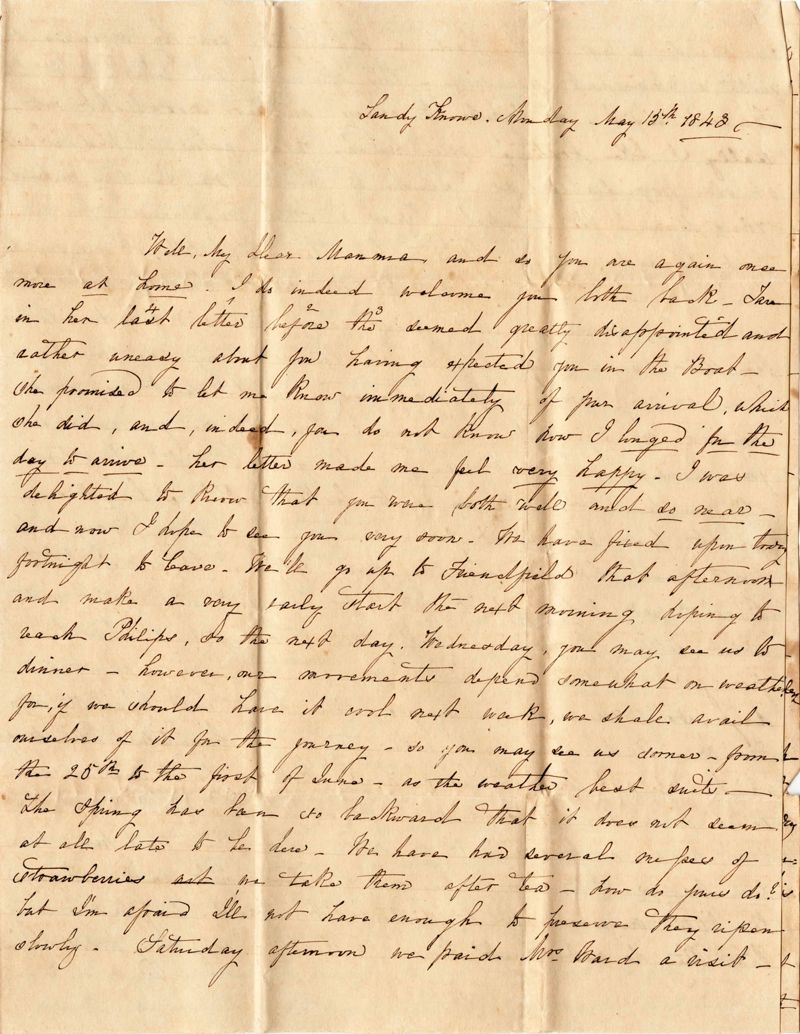 Sandy Knowe. Monday May 15th 1843
Well, My Dear Mamma, and so you are again once
more at home. I do indeed welcome you both back – Jane
in her last letter before the seemed greatly disappointed and
4 1 2 3
rather uneasy about you having expected you in the Boat –
she promised to let me know immediately of your arrival, which
she did, and, indeed, you do not know how I longed for the
day to arrive – her letter made me feel very happy – I was
delighted to know that you were both well and so near –
and now I hope to see you very soon – We have fixed upon today
fortnight to leave – We'll go up to Friendfield that afternoon
and make a very early start the next morning hoping to
reach Philips, so the next day, Wednesday, you may see us to
dinner – however, our movements depend somewhat on weather
for, if we should have it cool next week, we shall avail
ourselves of it for the journey – so you may see us – from
the 25th to the first of June – as the weather best suits –
The Spring has been so backward that it does not seem
at all late to be here – We have had several messes of
strawberries we take them after tea – how do yours do?
but I'm afraid I'll not have enough to preserve they ripen
slowly – Saturday afternoon we paid Mrs Ward a visit –